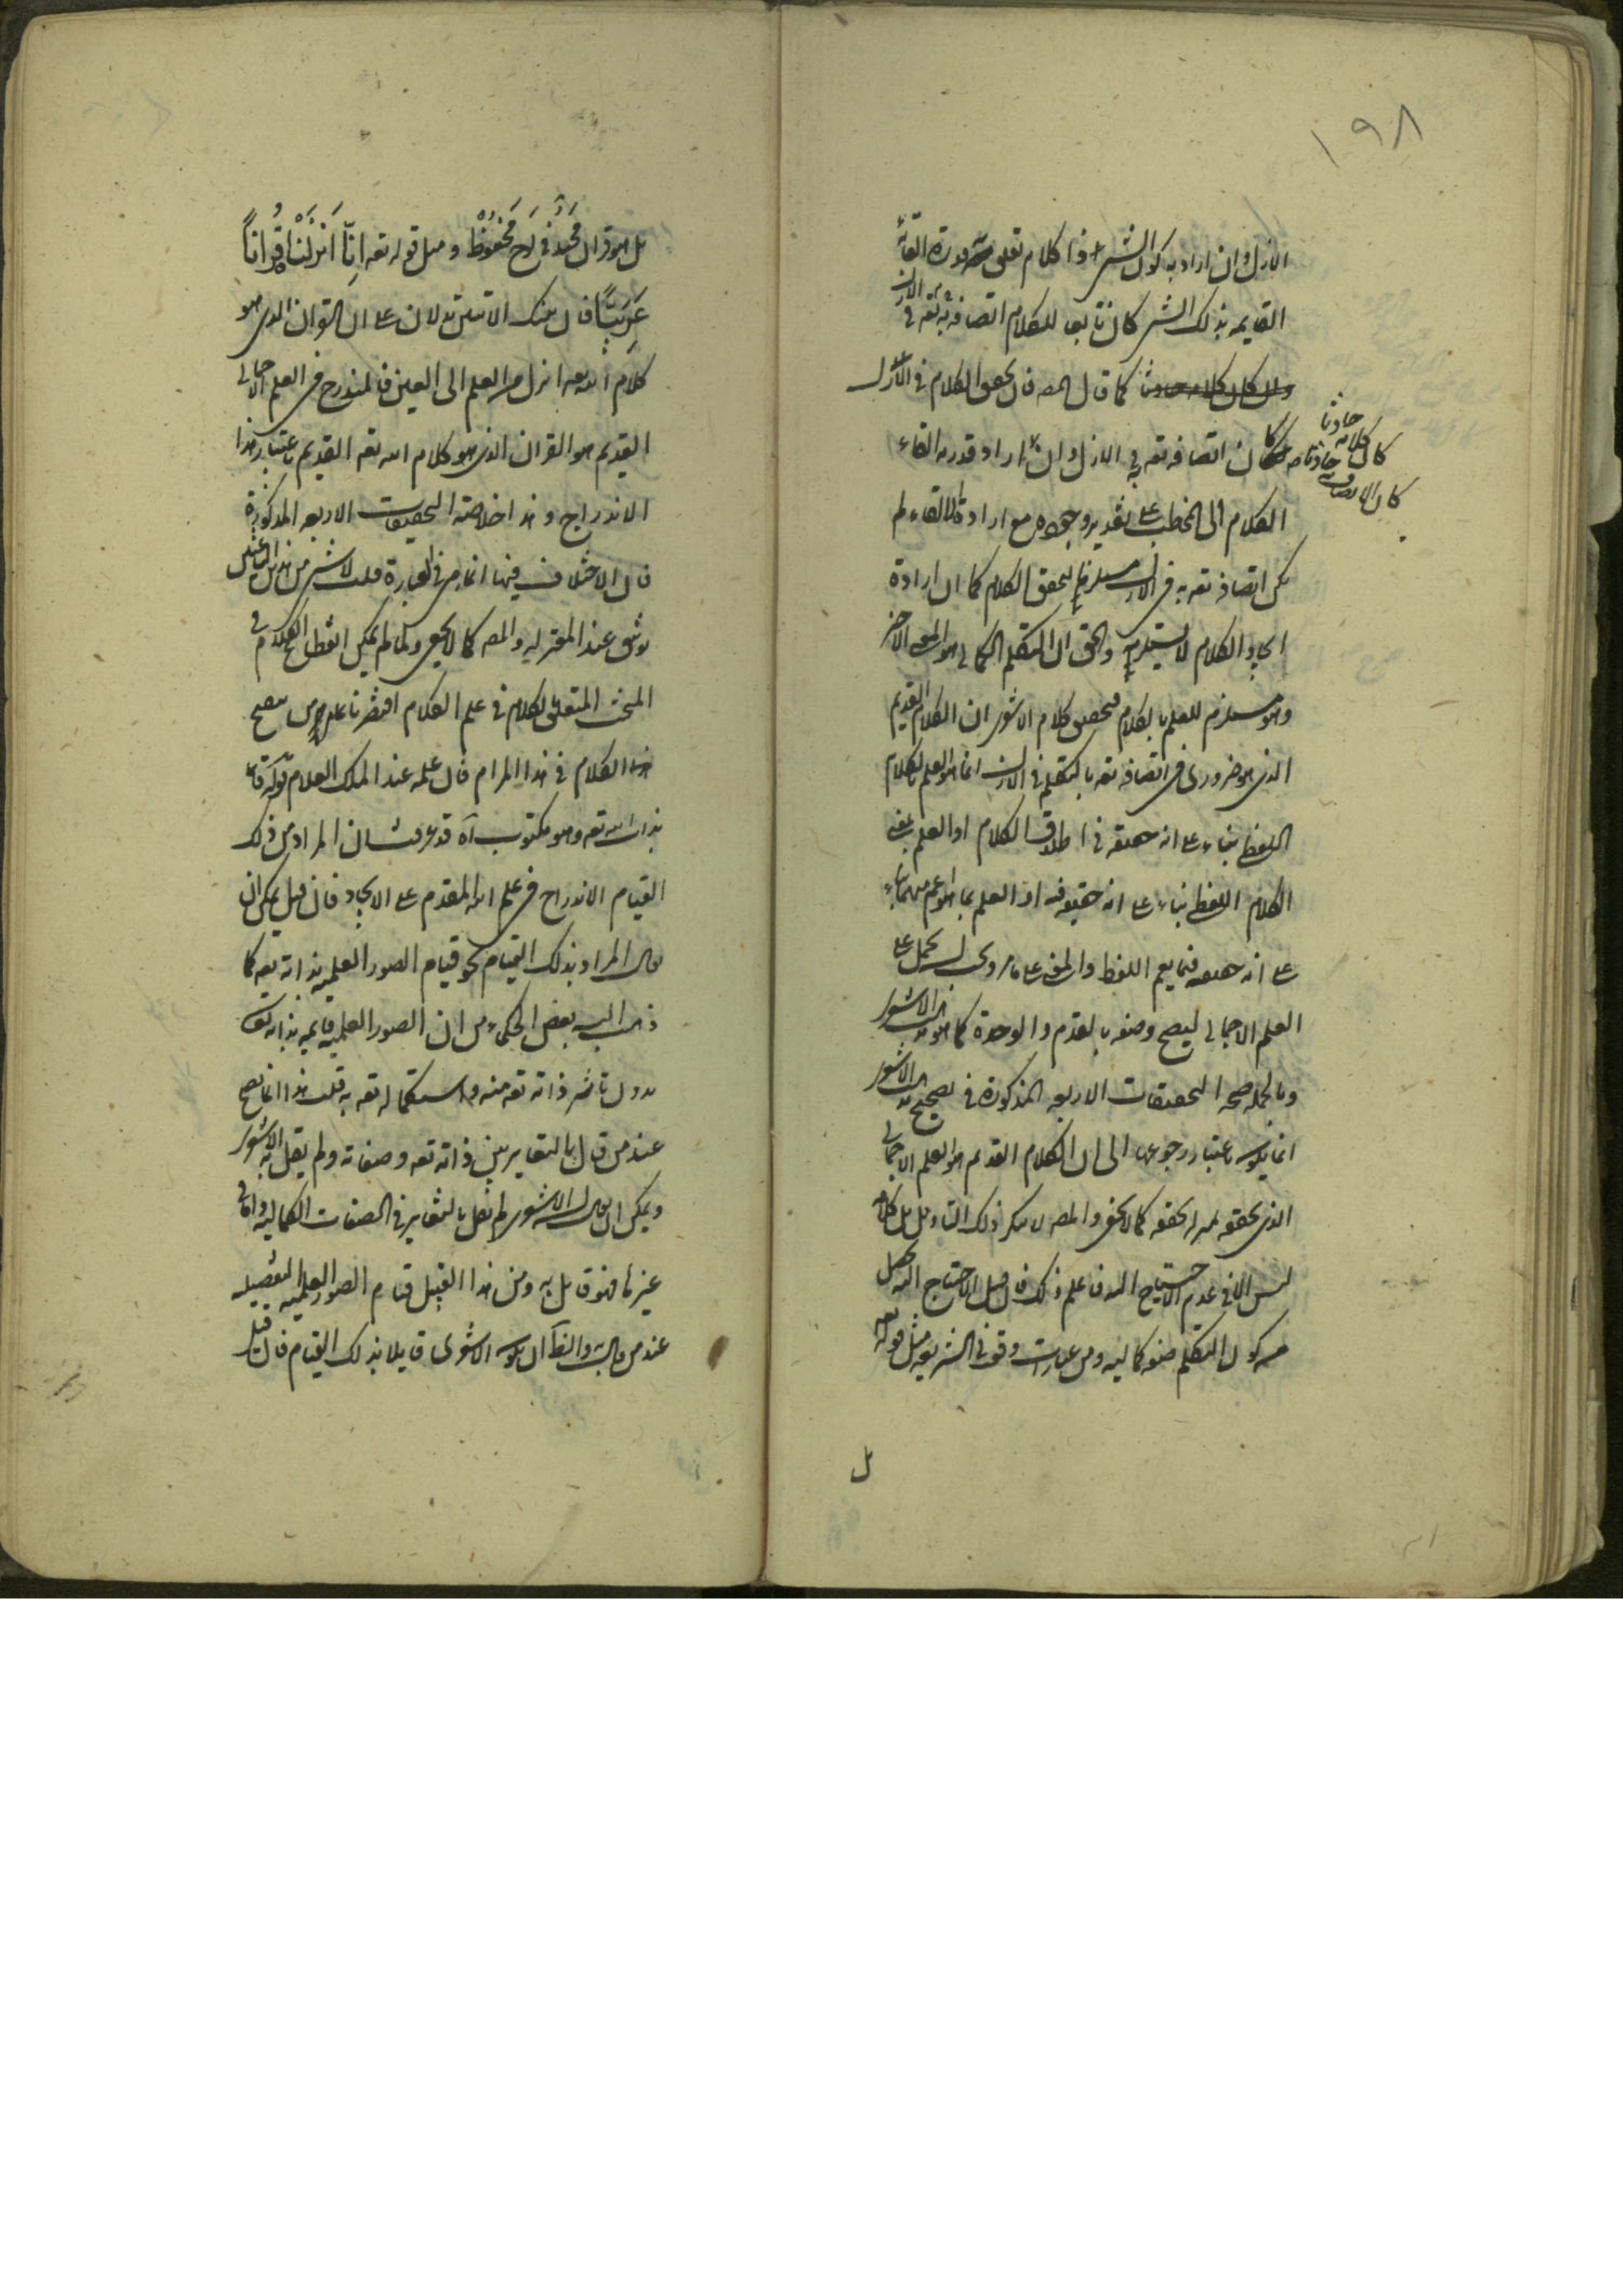 ١٩٨
الازل وان اراد به كون الشئ ذا كلام تعلق قدرة القائه
القايمه بذلك الشئ كان تابعا للكلام اتصافه به تعه في الازل
كما قال المصه فان تحقق الكلام في الازل
كان كلامه حادثا
كان الاتصاف به حادثا
كان اتصافه تعه في الازل وان اراد قدرة القاء
الكلام الى المخاطب على تقدير وجوده مع ارادة الالقاء لم
يكن اتصافه تعه به في الازل مستلزما لتحقق الكلام كما ان ارادة
ايجاد الكلام لا يستلزمه والحق ان التكلم الكمالي هو المعنى الاخر
وهو مستلزم للعلم بالكلام فتحصل كلام الاشعري ان الكلام القديم
الذي هو ضروري في اتصافه تعه بالتكلم في الازل انما هو العلم بالكلام
اللفظي بناء على انه حقيقه في اطلاق الكلام او العلم بمعنى
الكلام اللفظي بناء على انه حقيقه فيه او العلم بما هو اعم منهما بناء
على انه حقيقه فيما يعم اللفظ والمعنى على ما روى
العلم الاجمالي ليصح وصفه بالقدم والوحدة كما هو مذهب الاشعري
وبالجمله صحه التحقيقات الاربعه المذكورة في تصحيح مذهب الاشعري
انما يكون باعتبار رجوعها الى ان الكلام القديم هو العلم الاجمالي
الذي تحقق كما لا يخفى والمصه لا ينكر ذلك التاويل بل كلامه
ليس الا في عدم الاحتياج اليه فاعلم ذلك فان قيل الاحتياج اليه يحصل
من كون التكلم صفه كماليه ومن عبارات وقعت في الشريعه مثل قوله تعه
بل
بل هو قرآن مَجيد في لَوح مَحْفُوظْ ومثل قوله تعه اِنّا اَنزَلْنَاهُ قُرْاناً
عَرَبيّاً فان تينك الايتين تدلان على ان القران الذي هو
كلام الله تعه انزل من العلم الى العين فالمندرج في العلم الاجمالي
القديم هو القران الذي هو كلام الله تعه القديم باعتبار هذا
الاندراج وهذا خلاصة التحقيقات الاربعه المذكورة
فان الاختلاف فيها انما هو في العبارة قلت لا شئ من هذين النقلين
يوثق عند المعتزليه والمصه كما لا يخفى ولما لم يكن اتقطاع الكلام في
المبحث المتعلق بالكلام في علم الكلام اقتصرنا على
هذا الكلام في هذا المرام فان علمه عند الملك العلام قوله قائمه
بذات الله تعه وهو مكتوب آه قد عرفت ان المراد من ذلك
القيام الاندراج في علم الله المقدم على الايجاد فان قيل يمكن ان
يكون المراد بذلك القيام نحو قيام الصور العلميه بذاته تعه كما
ذهب اليه بعض الحكماء من ان الصور العلميه قايمه بذاته تعه
بدون تاثر ذاته تعه منه واستكماله تعه به قلت هذا انما يصح
عند من قال بالتغاير بين ذاته تعه وصفاته ولم يقل به الاشعري
ويمكن ان يقال الاشعري لم يقل بالتغاير في الصفات الكماليه واما في
غيرها فهو قايل به ومن هذا القبيل قيام الصور العلميه التفصيليه
عند من قال به والظاهر ان يكون الاشعري قايلا بذلك القيام فان قيل